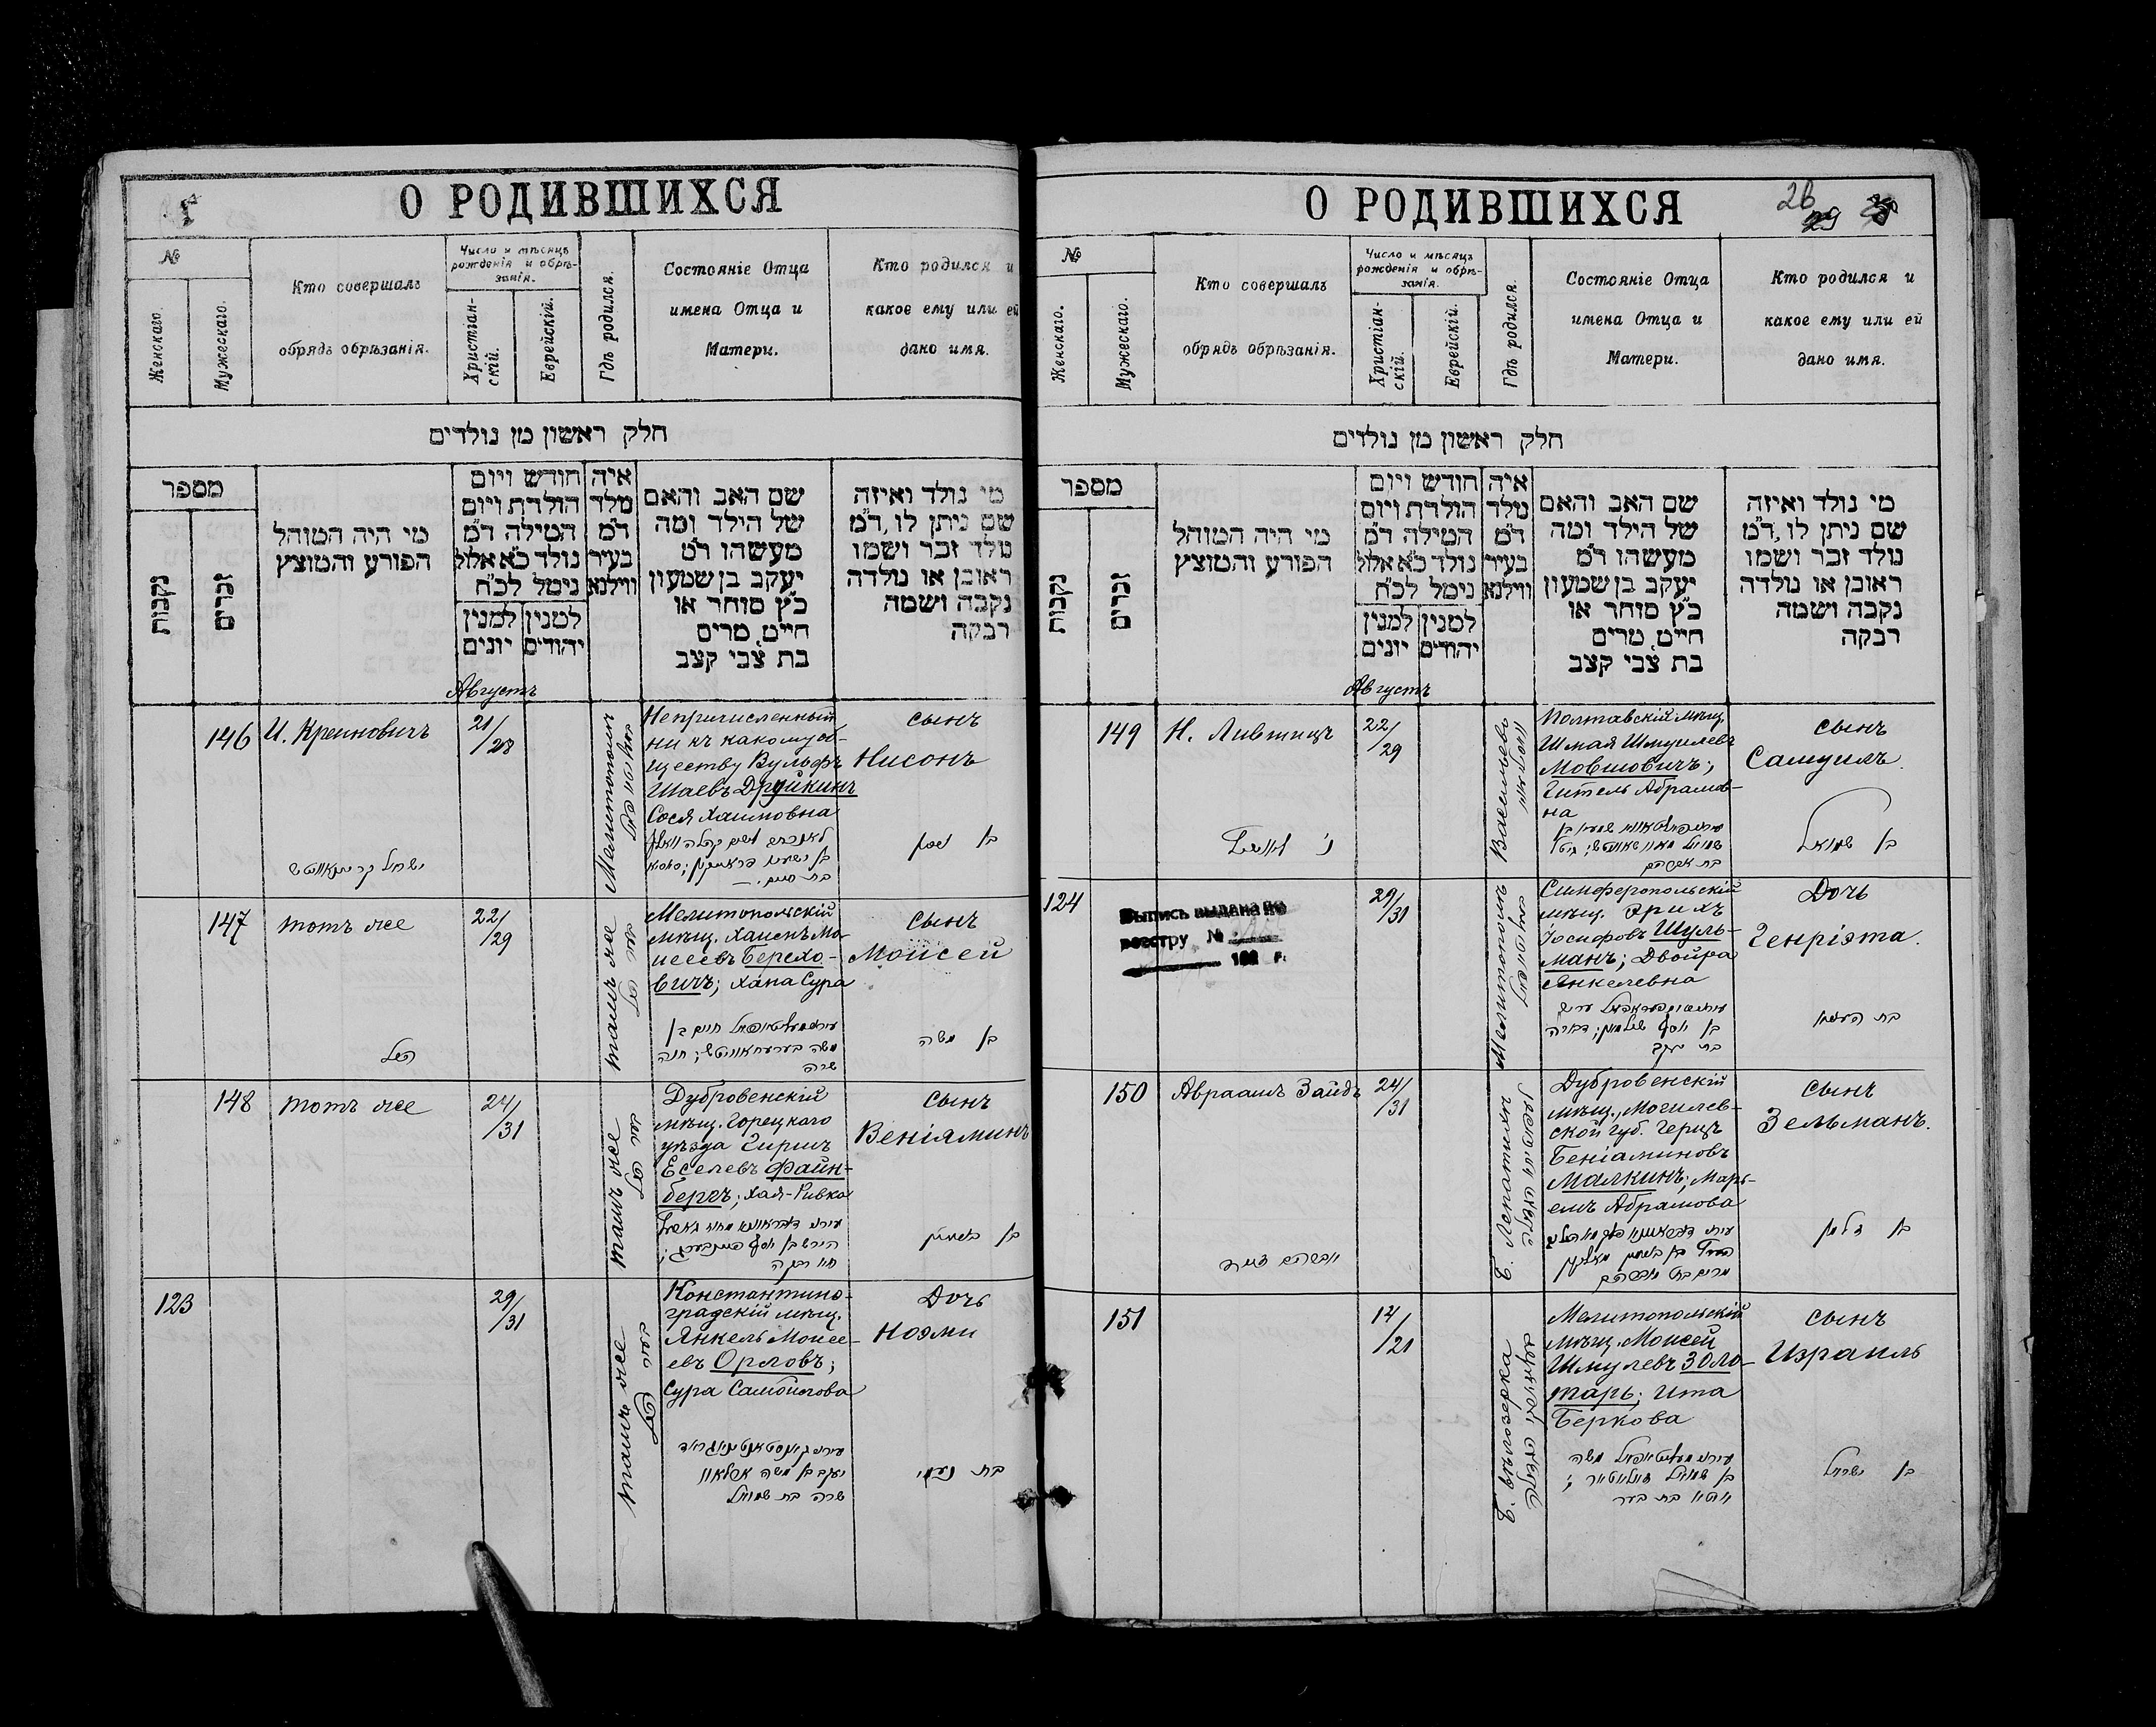 О РОДИВШИХСЯ
№
Женскаго.
Мужескаго.
Кто совершалъ
обрядъ обрѣзанія.
Число и мѣсяцъ
рожденія и обрѣ-
занія.
Христіан-
скій.
Еврейскій.
Гдѣ родился.
Состояніе Отца
имена Отца и
Матери.
Кто родился и
какое ему или ей
дано имя.
חלק ראשון מן נולדים
מספר
נקבות
זכרים
מי היה המוהל
הפורע והמוצץ
חודש ויום
הולדת ויום
המילה ד"מ
נולד כ"א אלול
נימל לכ"ח
למנין למנין
יהודים יונים
איה
נולד
ד"מ
בעיר
ווילנא
שם האב והאם
של הילד ומה
מעשהו ד"מ
יעקב בן שמעון
כ"ץ סוחר או
חייט, מרים
בת צבי קצב
מי נולד ואיזה
שם ניתן לו, ד"מ
נולד זכר ושמו
ראובן או נולדה
נקבה ושמה
רבקה
Августъ
146
И. Креиновичъ
21/28
Мелитополь
Непричисленный
ни къ какому об-
ществу Вульфъ
Шаевъ Друйкинъ
Сося Хаимовна
сынъ
Нисонъ
בן ניסן
147
тотъ же
22/29
тамъ же
Мелитопольскій
мѣщ. Хаимъ Мо-
исеевъ Берехо-
вичъ; Хана Сура
משה בערעחאוויטש; חנה
שרה
сынъ
Моисей
בן משה
הנ"ל
148
тотъ же
24/31
тамъ же
Дубровенскій
мѣщ. Горецкаго
уѣзда Гиршъ
Еселевъ Файн-
бергъ; Хая-Ривка
חיה רבקה
сынъ
Веніяминъ
בן בנימין
123
29/31
тамъ же
Константино-
градскій мѣщ.
Янкель Моисе-
евъ Орловъ;
Сура Самойлова
יעקב בן משה ארלאוו
שרה בת שמואל
Дочь
Ноэми
בת נעמי
О РОДИВШИХСЯ
26
29
№
Женскаго.
Мужескаго.
Кто совершалъ
обрядъ обрѣзанія.
Число и мѣсяцъ
рожденія и обрѣ-
занія.
Христіан-
скій.
Еврейскій.
Гдѣ родился.
Состояніе Отца
имена Отца и
Матери.
Кто родился и
какое ему или ей
дано имя.
חלק ראשון מן נולדים
מספר
נקבות
זכרים
מי היה המוהל
הפורע והמוצץ
חודש ויום
הולדת ויום
המילה ד"מ
נולד כ"א אלול
נימל לכ"ח
למנין למנין
יהודים יונים
איה
נולד
ד"מ
בעיר
ווילנא
שם האב והאם
של הילד ומה
מעשהו ד"מ
יעקב בן שמעון
כ"ץ סוחר או
חייט, מרים
בת צבי קצב
מי נולד ואיזה
שם ניתן לו, ד"מ
נולד זכר ושמו
ראובן או נולדה
נקבה ושמה
רבקה
Августъ
149
Н. Лившицъ
22/29
Васильевъ
Полтавскій мѣщ.
Шмая Шмуилевъ
Мовшовичъ;
Гитель Абрамов-
на
בת אברהם
сынъ
Самуилъ.
בן שמואל
124
Выпись выдана по
реестру №
192 г.
29/31
Мелитополь
Симферопольскій
мѣщ. Эрихъ
Іосифовъ Шуль-
манъ; Двойра
Янкелевна
בן יוסף שולמאן; דבורה
בת יעקב
Дочь
Генріэта.
150
Авраамъ Зайдъ
24/31
Б. Лепатиха
Дубровенскій
мѣщ., Могилев-
ской губ. Герцъ
Беніаминовъ
Малкинъ; Марь-
емъ Абрамова
הערץ בן בנימין מאלקין
מרים בת אברהם
сынъ
Зельманъ.
בן זלמן
151
14/21
Б. Бѣлозерка
Мелитопольскій
мѣщ. Моисей
Шмулевъ Золо-
тарь; Ита
Беркова
сынъ
Израиль
בן ישראל